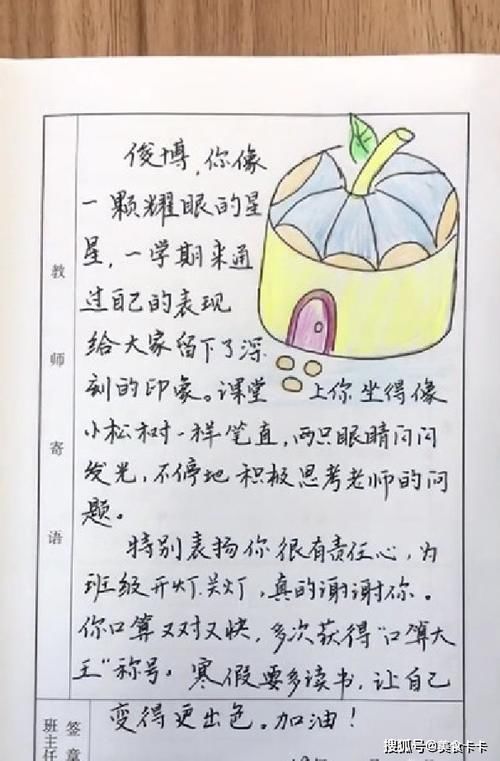 俊博，你像
一颗耀眼的星
星，一学期来通
过自己的表现
给大家留下了深
刻的印象。课堂上你坐得像
小松树一样笔直，两只眼睛闪闪
发光，不停地积极思考老师的问
题。
特别表扬你很有责任心，为
班级开灯关灯，真的谢谢你。
你口算又对又快，多次获得“口算大
王”称号。寒假要多读书，让自己
变得更出色。加油！
教师寄语
班主任
签章
搜狐号@美食卡卡